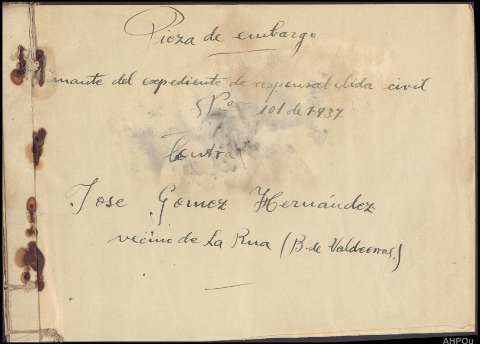 Pieza de embargo
mante del expediente de responsabilida civil
Nº 101 de 1937
Contra
Jose Gomez Hernández
vecino de La Rua (B. de Valdeorras)
AHPOu